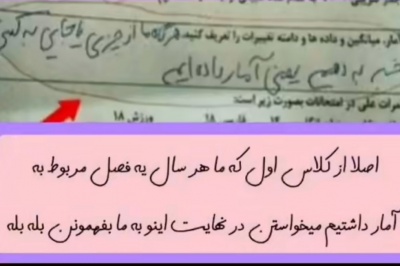 آمار، میانگین و داده ها و دامنه تغییرات را تعریف کنید. هرگاه ما از چیزی یا جایی به کسی
خبر بدهیم یعنی آمار داده ایم
نمرات علی در امتحانات بصورت زیر است:
۱۸ فارسی ۱۸ ورزش ۱۸
اصلا از کلاس اول که ما هر سال یه فصل مربوط به
آمار داشتیم میخواستن در نهایت اینو به ما بفهمونن بله بله